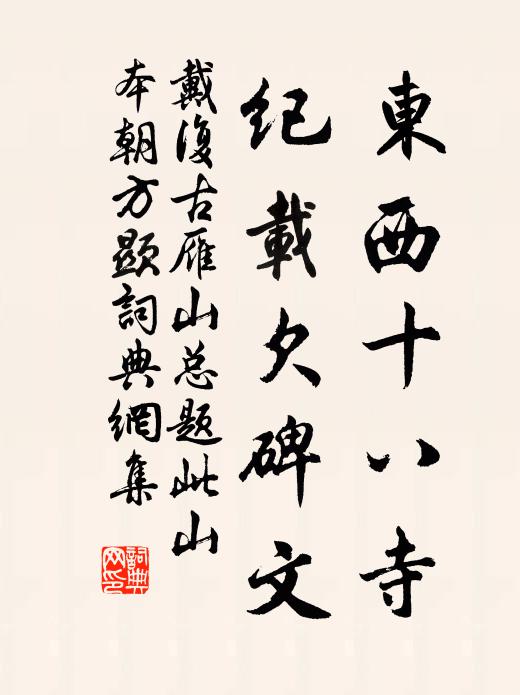 東西十八寺
紀載欠碑文
戴復古雁山总題此山
本朝方顯詞典網集
詞典网印